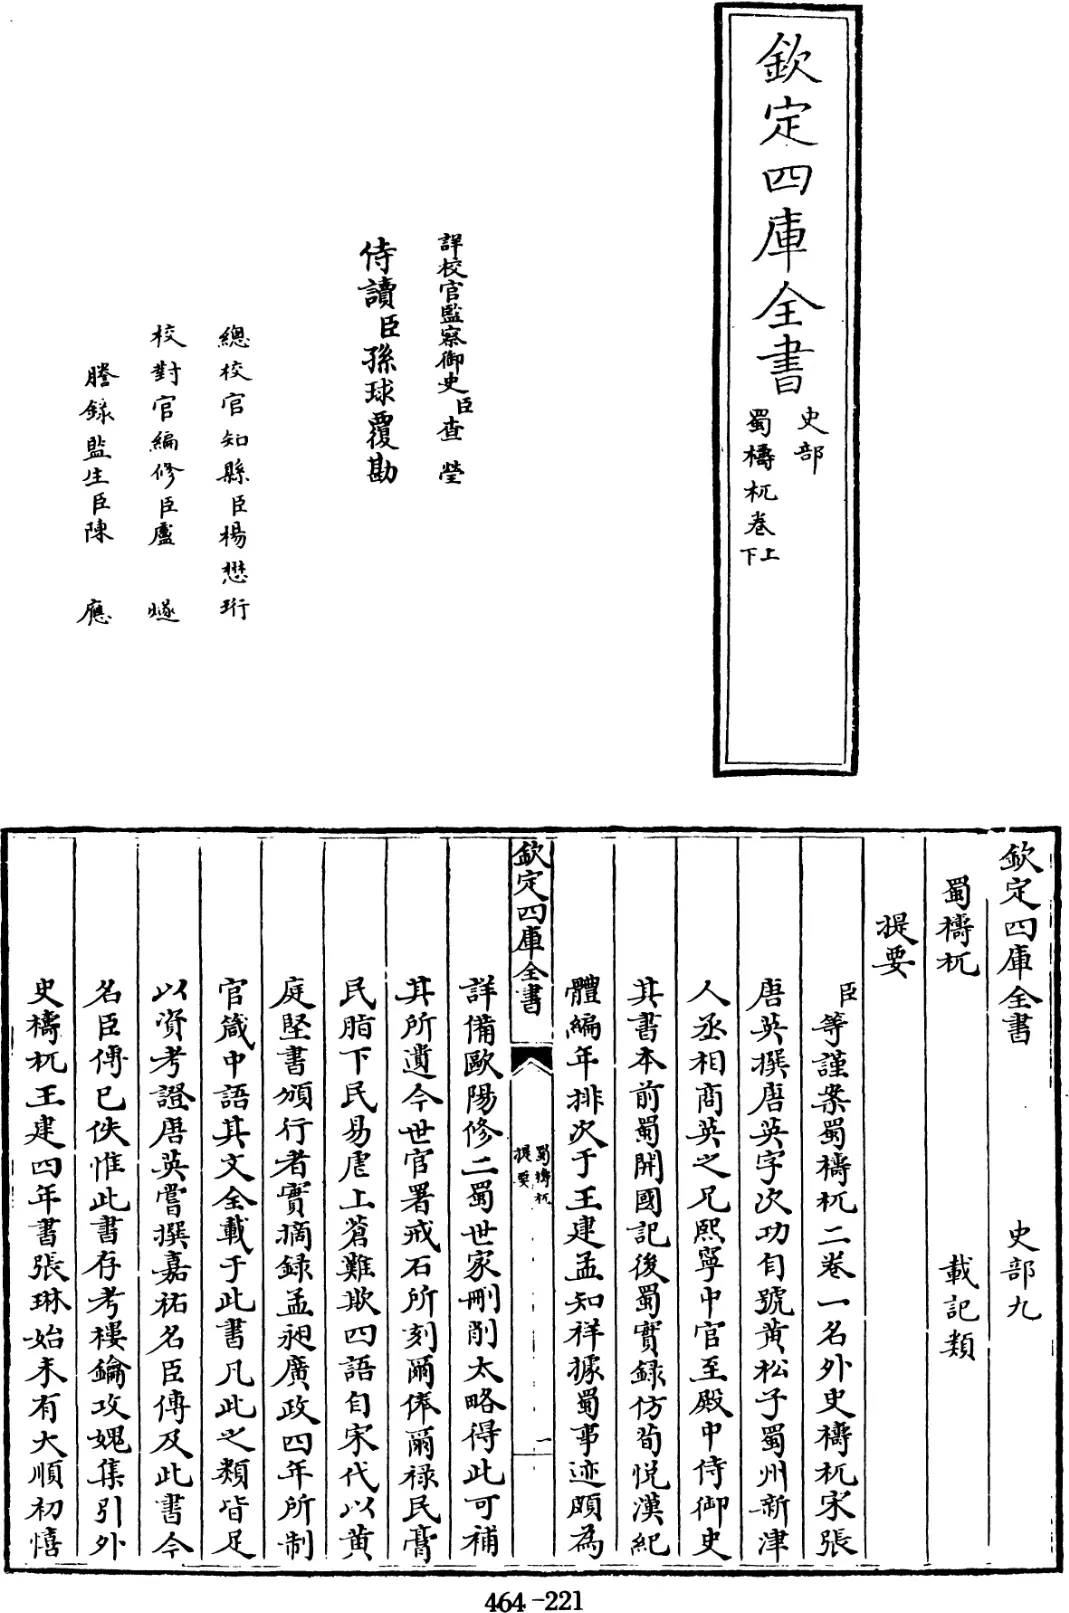 欽定四庫全書
史部
蜀檮杌卷上下
詳校官監察御史臣查瑩
侍讀臣孫球覆勘
總校官知縣臣楊懋珩
校對官編修臣盧遂
謄錄監生臣陳應
欽定四庫全書 史部九
蜀檮杌 載記類
提要
臣等謹案蜀檮杌二卷一名外史檮杌宋張
唐英撰唐英字次功自號黄松子蜀州新津
人丞相商英之兄熙寧中官至殿中侍御史
其書本前蜀開國記後蜀實錄仿荀悅漢紀
體編年排次于王建孟知祥據蜀事迹頗為
欽定四庫全書 蜀檮杌 提要 一
詳備歐陽修二蜀世家刪削太略得此可補
其所遺今世官署戒石所刻爾俸爾禄民膏
民脂下民易虐上蒼難欺四語自宋代以黄
庭堅書頒行者實摘錄孟昶廣政四年所制
官箴中語其文全載于此書凡此之類皆足
以資考證唐英嘗撰嘉祐名臣傳及此書今
名臣傳已佚惟此書存考樓鑰攻媿集引外
史檮杌王建四年書張琳始末有大順初憘
464-221